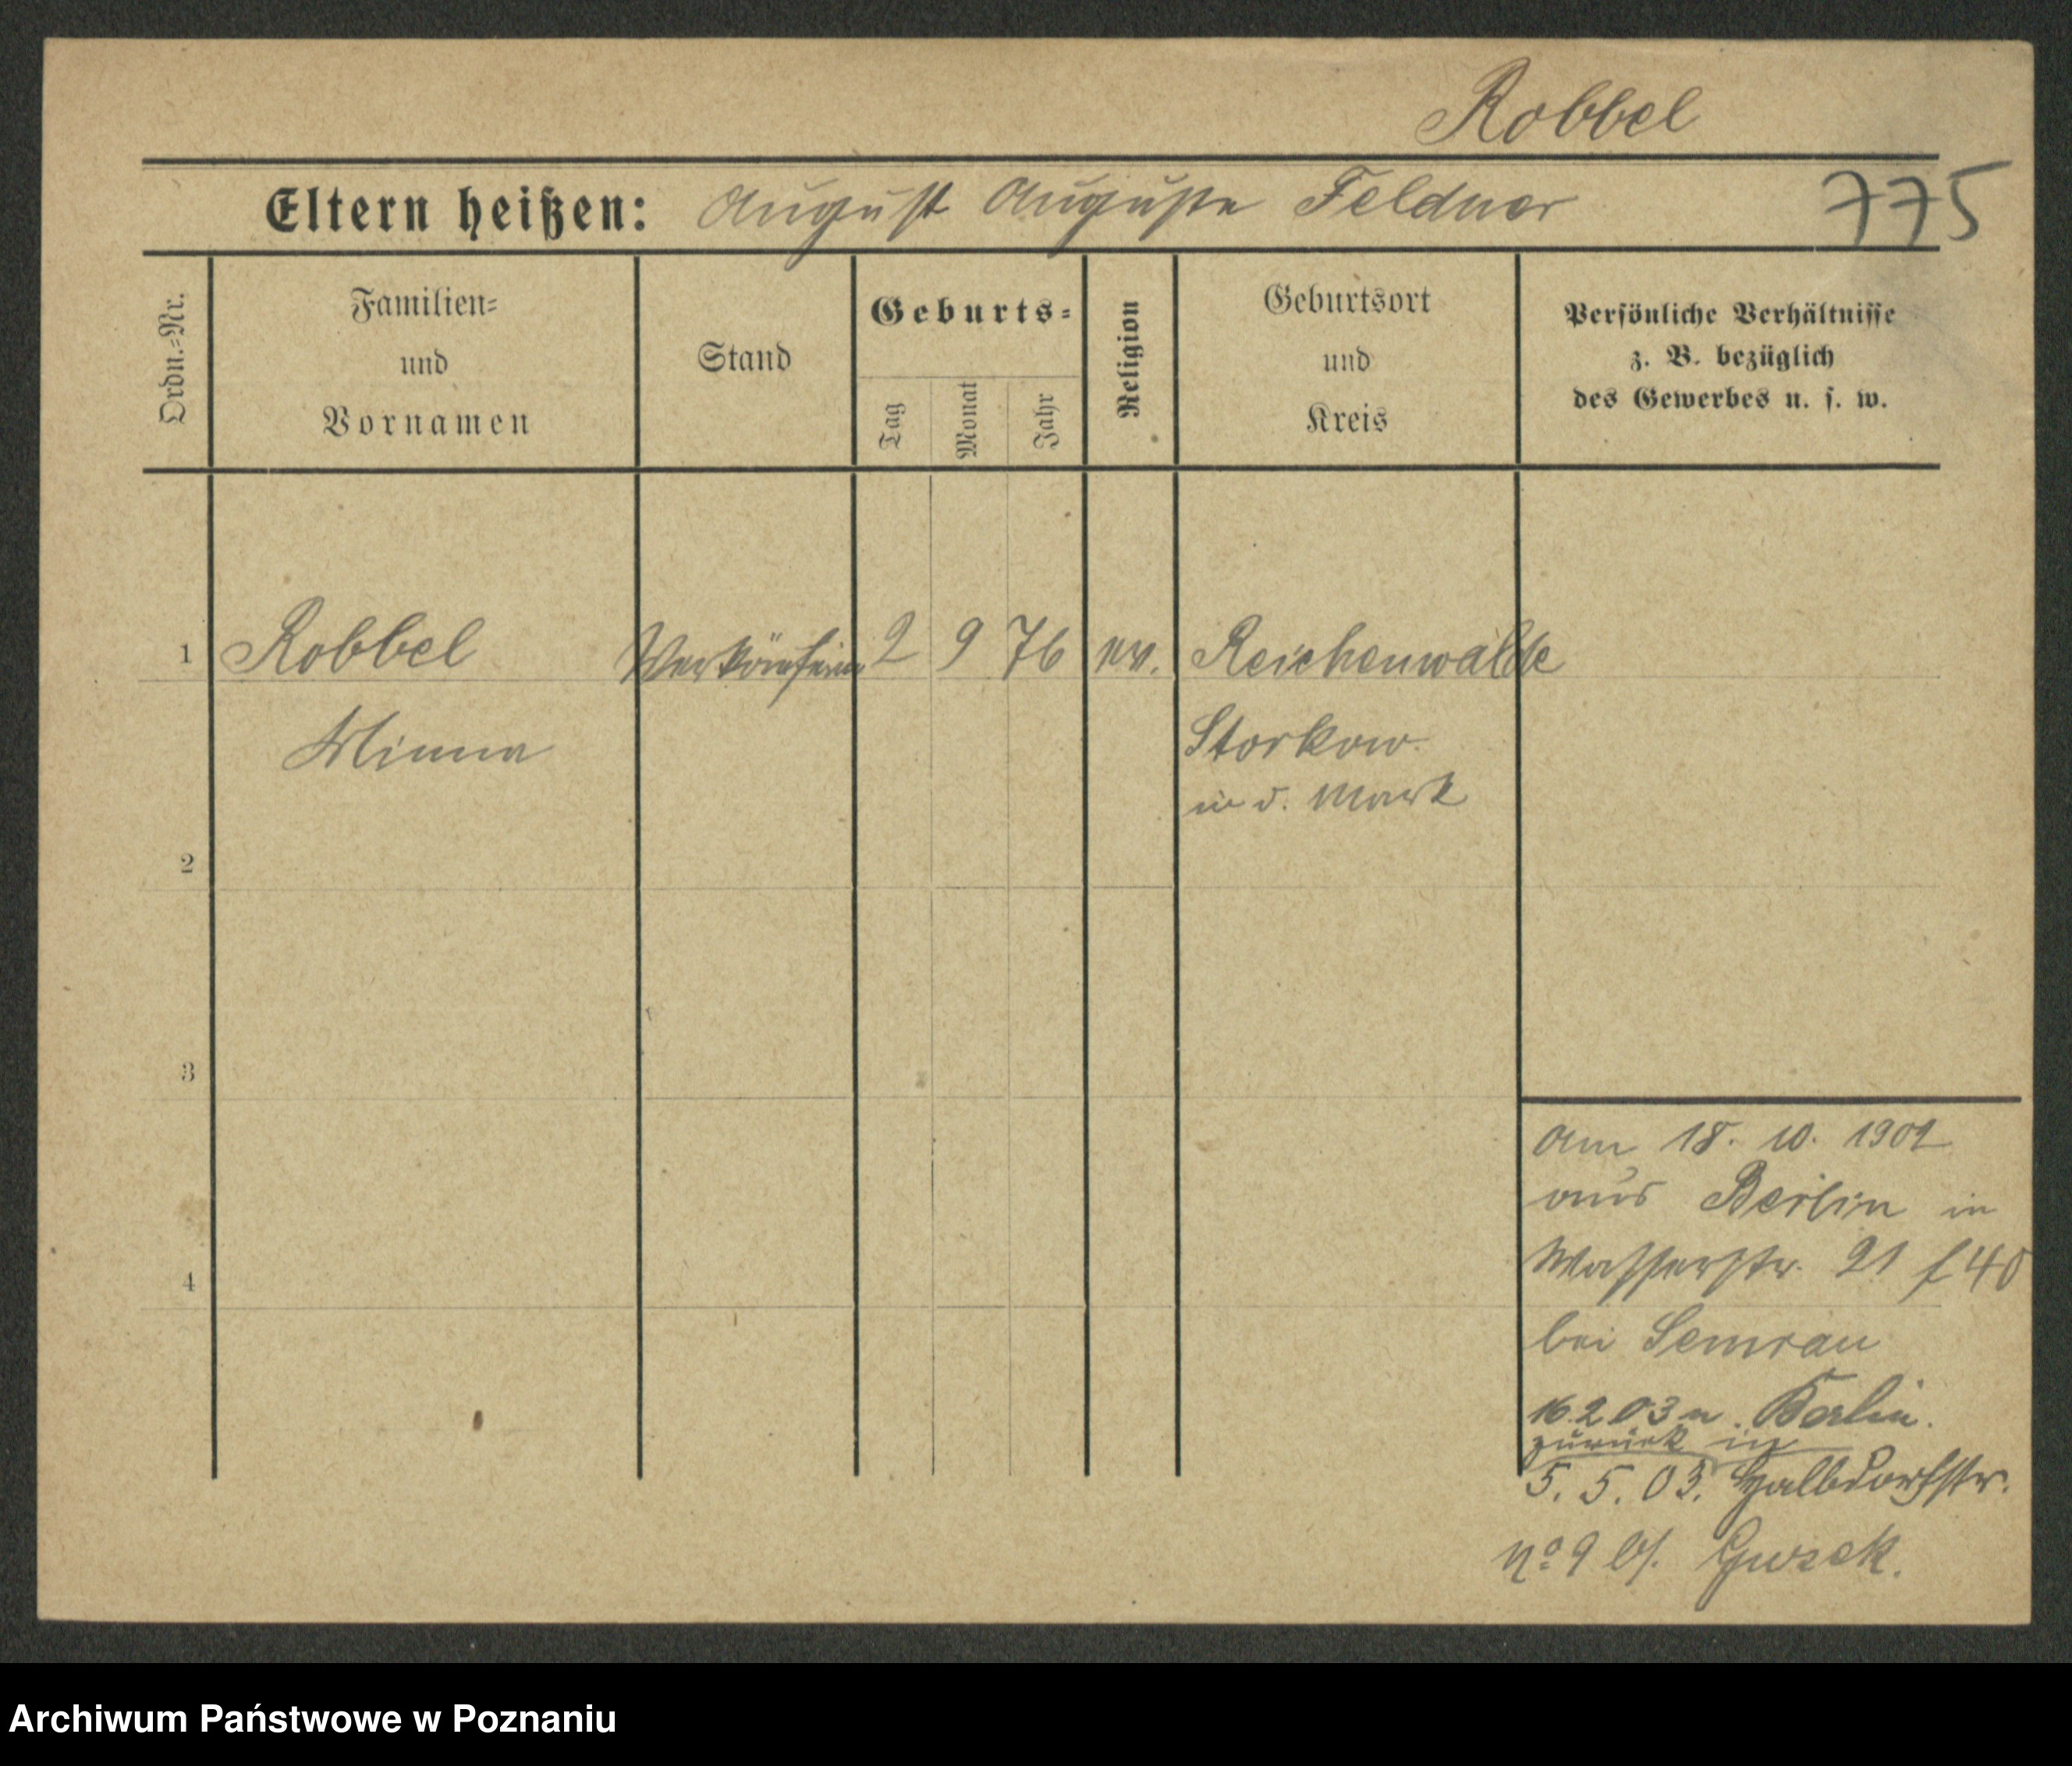 Robbel
Eltern heißen: August Auguste Feldner
775
Ordn.-Nr.
Familien-
und
Vornamen
Stand
Geburts-
Tag
Monat
Jahr
Religion
Geburtsort
und
Kreis
Persönliche Verhältnisse
z. B. bezüglich
des Gewerbes u. s. w.
1 Robbel Verkäuferin 2 9 76 ev. Reichenwalde
Minna Storkow
in d. Mark
2
3
4
Am 18. 10. 1902
aus Berlin in
Wasserstr. 21 f 40
bei Semrau
16.2.03 n. Berlin.
zurück in
5. 5. 03. Halbdorfstr.
No 9 b/.
Archiwum Państwowe w Poznaniu